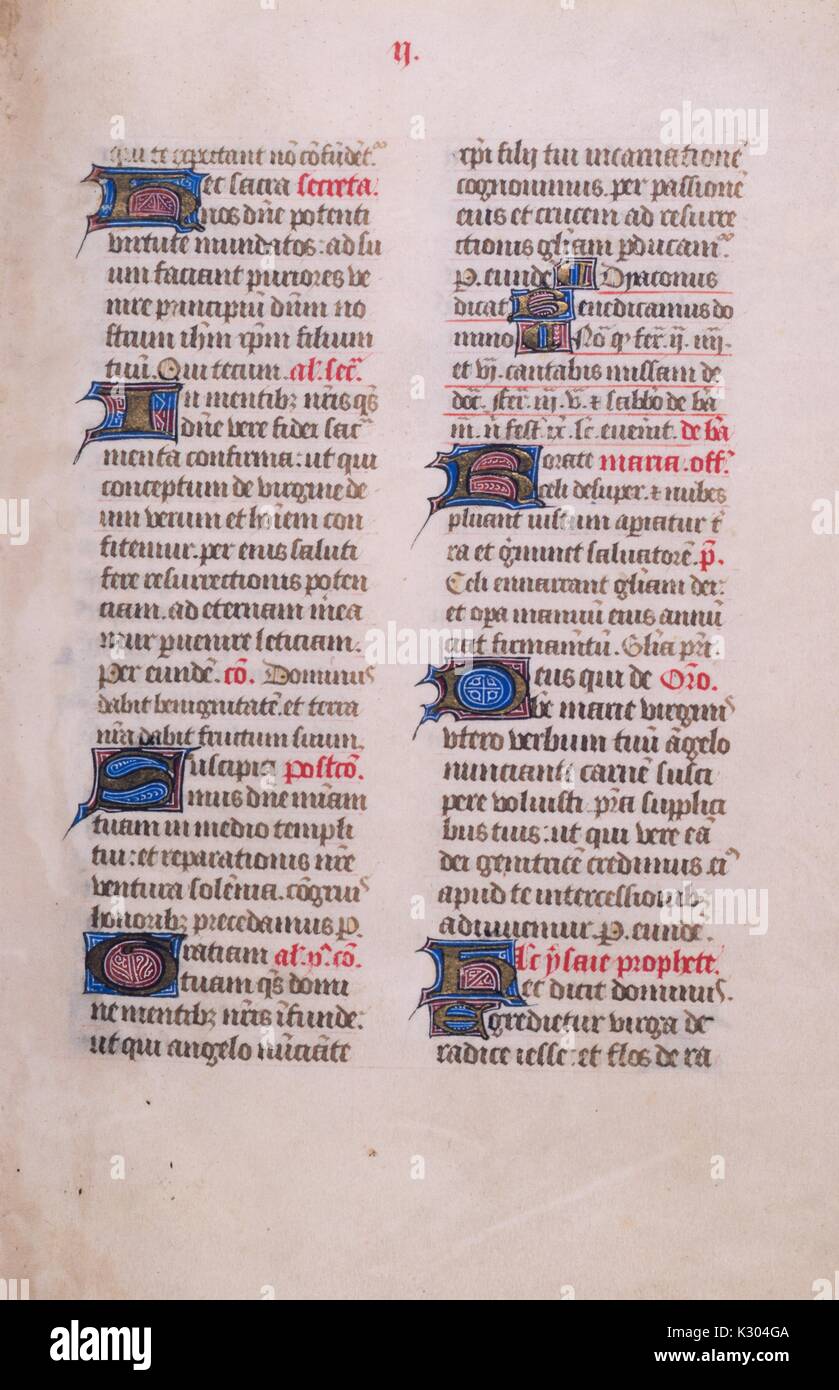 ij.
qui te expectant nō cōfūdēt᷑
Hec sacra secreta.
nos dn̄e potenti
virtute mundatos: ad su
um faciant puriores ve
nire principiū dūm no
strum ihm̄ xp̄m filium
tuū. Qui tecum. al'. sec̄.
In mentibꝫ nr̄is q̄s
dn̄e vere fidei sac̄
menta confirma: ut qui
conceptum de virgine de
um verum et hoīem con
fitemur. per eius saluti
fere resurrectionis poten
ciam. ad eternam mea
mur ꝑuenire leticiam.
Per eundē. cō. Dominus
dabit benignitatē. et terra
nr̄a dabit fructum suum.
Suscipia postcō.
mus dn̄e mīam
tuam in medio templi
tui: et reparationis nr̄e
ventura solēnia. cōgruis
honoribꝫ precedamus P.
Gratiam al'. p'. cō.
tuam q̄s domi
ne mentibꝫ nr̄is īfunde:
ut qui angelo nūciāte
xp̄i filij tui incarnationē
cognouimus. per passionē
eius et crucem ad resurre
ctionis gl̄iam ꝑducam᷑
P. eundē Dyaconus
dicat Benedicamus do
mino Nō ꝙ fer̄. ij. iiij.
et vj. cantabis missam de
dōc̄. fer̄. iij. v. ⁊ sabb̄o de bā
m. n̄ fest' ix. lc̄. euenit. de bā
Rorate maria. off᷑.
celi desuper. ⁊ nubes
pluant iustum apiatur t̄
ra et gm̄inet saluatorē. p̄.
Celi enarrant gl̄iam dei:
et oꝑa manuū eius annū
ciat firmamētū. Gl̄ia pr̄i.
Deus qui de Or̄o.
bē marie virginis
vtero verbum tuū āgelo
nunciante carnē susci
pere voluisti. pr̄a supplici
bus tuis: ut qui vere eā
dei genitricē credimus. ei᷒
apud te intercessionibꝫ
adiuuemur. P. eundē.
lc̄. ysaie prophete.
Hec dicit dominus.
Egredietur virga de
radice iesse: et flos de ra
alamy
a
alamy stock photo
K304GA
www.alamy.com